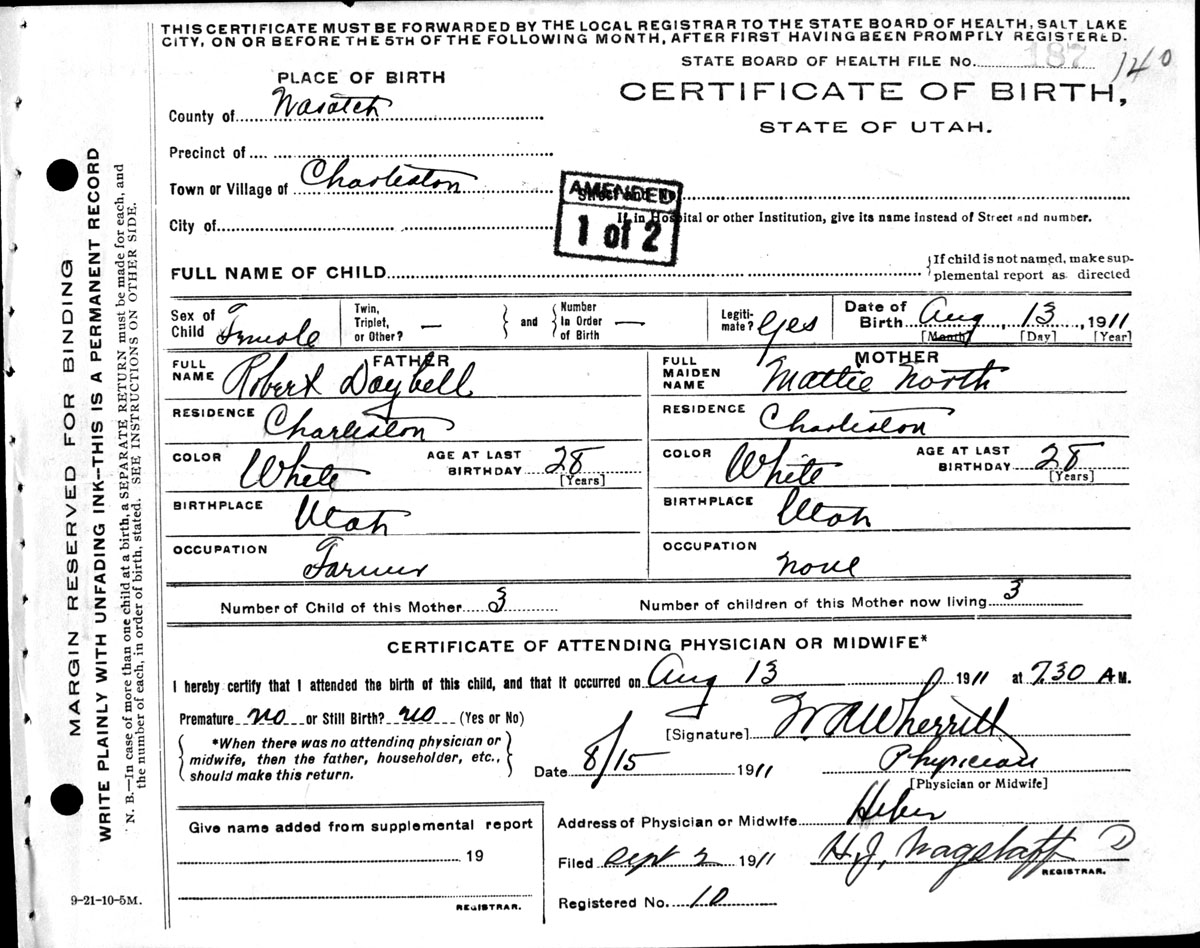 THIS CERTIFICATE MUST BE FORWARDED BY THE LOCAL REGISTRAR TO THE STATE BOARD OF HEALTH, SALT LAKE
CITY, ON OR BEFORE THE 5TH OF THE FOLLOWING MONTH, AFTER FIRST HAVING BEEN PROMPTLY REGISTERED.
STATE BOARD OF HEALTH FILE No. 187 140
PLACE OF BIRTH
CERTIFICATE OF BIRTH,
County of Wasatch
STATE OF UTAH.
Precinct of
Town or Village of Charleston
AMENDED
1 of 2
City of
If in Hospital or other Institution, give its name instead of Street and number.
FULL NAME OF CHILD
{If child is not named, make sup-
plemental report as directed
Sex of Child Female
Twin, Triplet, or Other? —
and
Number In Order of Birth —
Legiti-mate? Yes
Date of Birth Aug, 13, 1911
[Month] [Day] [Year]
FATHER
MOTHER
FULL NAME Robert Daybell
FULL MAIDEN NAME Mattie North
RESIDENCE Charleston
RESIDENCE Charleston
COLOR White AGE AT LAST BIRTHDAY 28 [Years]
COLOR White AGE AT LAST BIRTHDAY 28 [Years]
BIRTHPLACE Utah
BIRTHPLACE Utah
OCCUPATION Farmer
OCCUPATION None
Number of Child of this Mother 3
Number of children of this Mother now living 3
CERTIFICATE OF ATTENDING PHYSICIAN OR MIDWIFE*
I hereby certify that I attended the birth of this child, and that it occurred on Aug 13 1911 at 7.30 A M.
Premature no or Still Birth? no (Yes or No)
[Signature] W A Wherritt
*When there was no attending physician or
midwife, then the father, householder, etc.,
should make this return.
Date 8/15 1911
Physician
[Physician or Midwife]
Give name added from supplemental report
19
REGISTRAR.
Address of Physician or Midwife Heber
Filed Sept 2 1911 H. J. Wagstaff
REGISTRAR.
Registered No. 10
9-21-10-5M.
MARGIN RESERVED FOR BINDING
WRITE PLAINLY WITH UNFADING INK--THIS IS A PERMANENT RECORD
N. B.—In case of more than one child at a birth, a SEPARATE RETURN must be made for each, and
the number of each, in order of birth, stated. SEE INSTRUCTIONS ON OTHER SIDE.